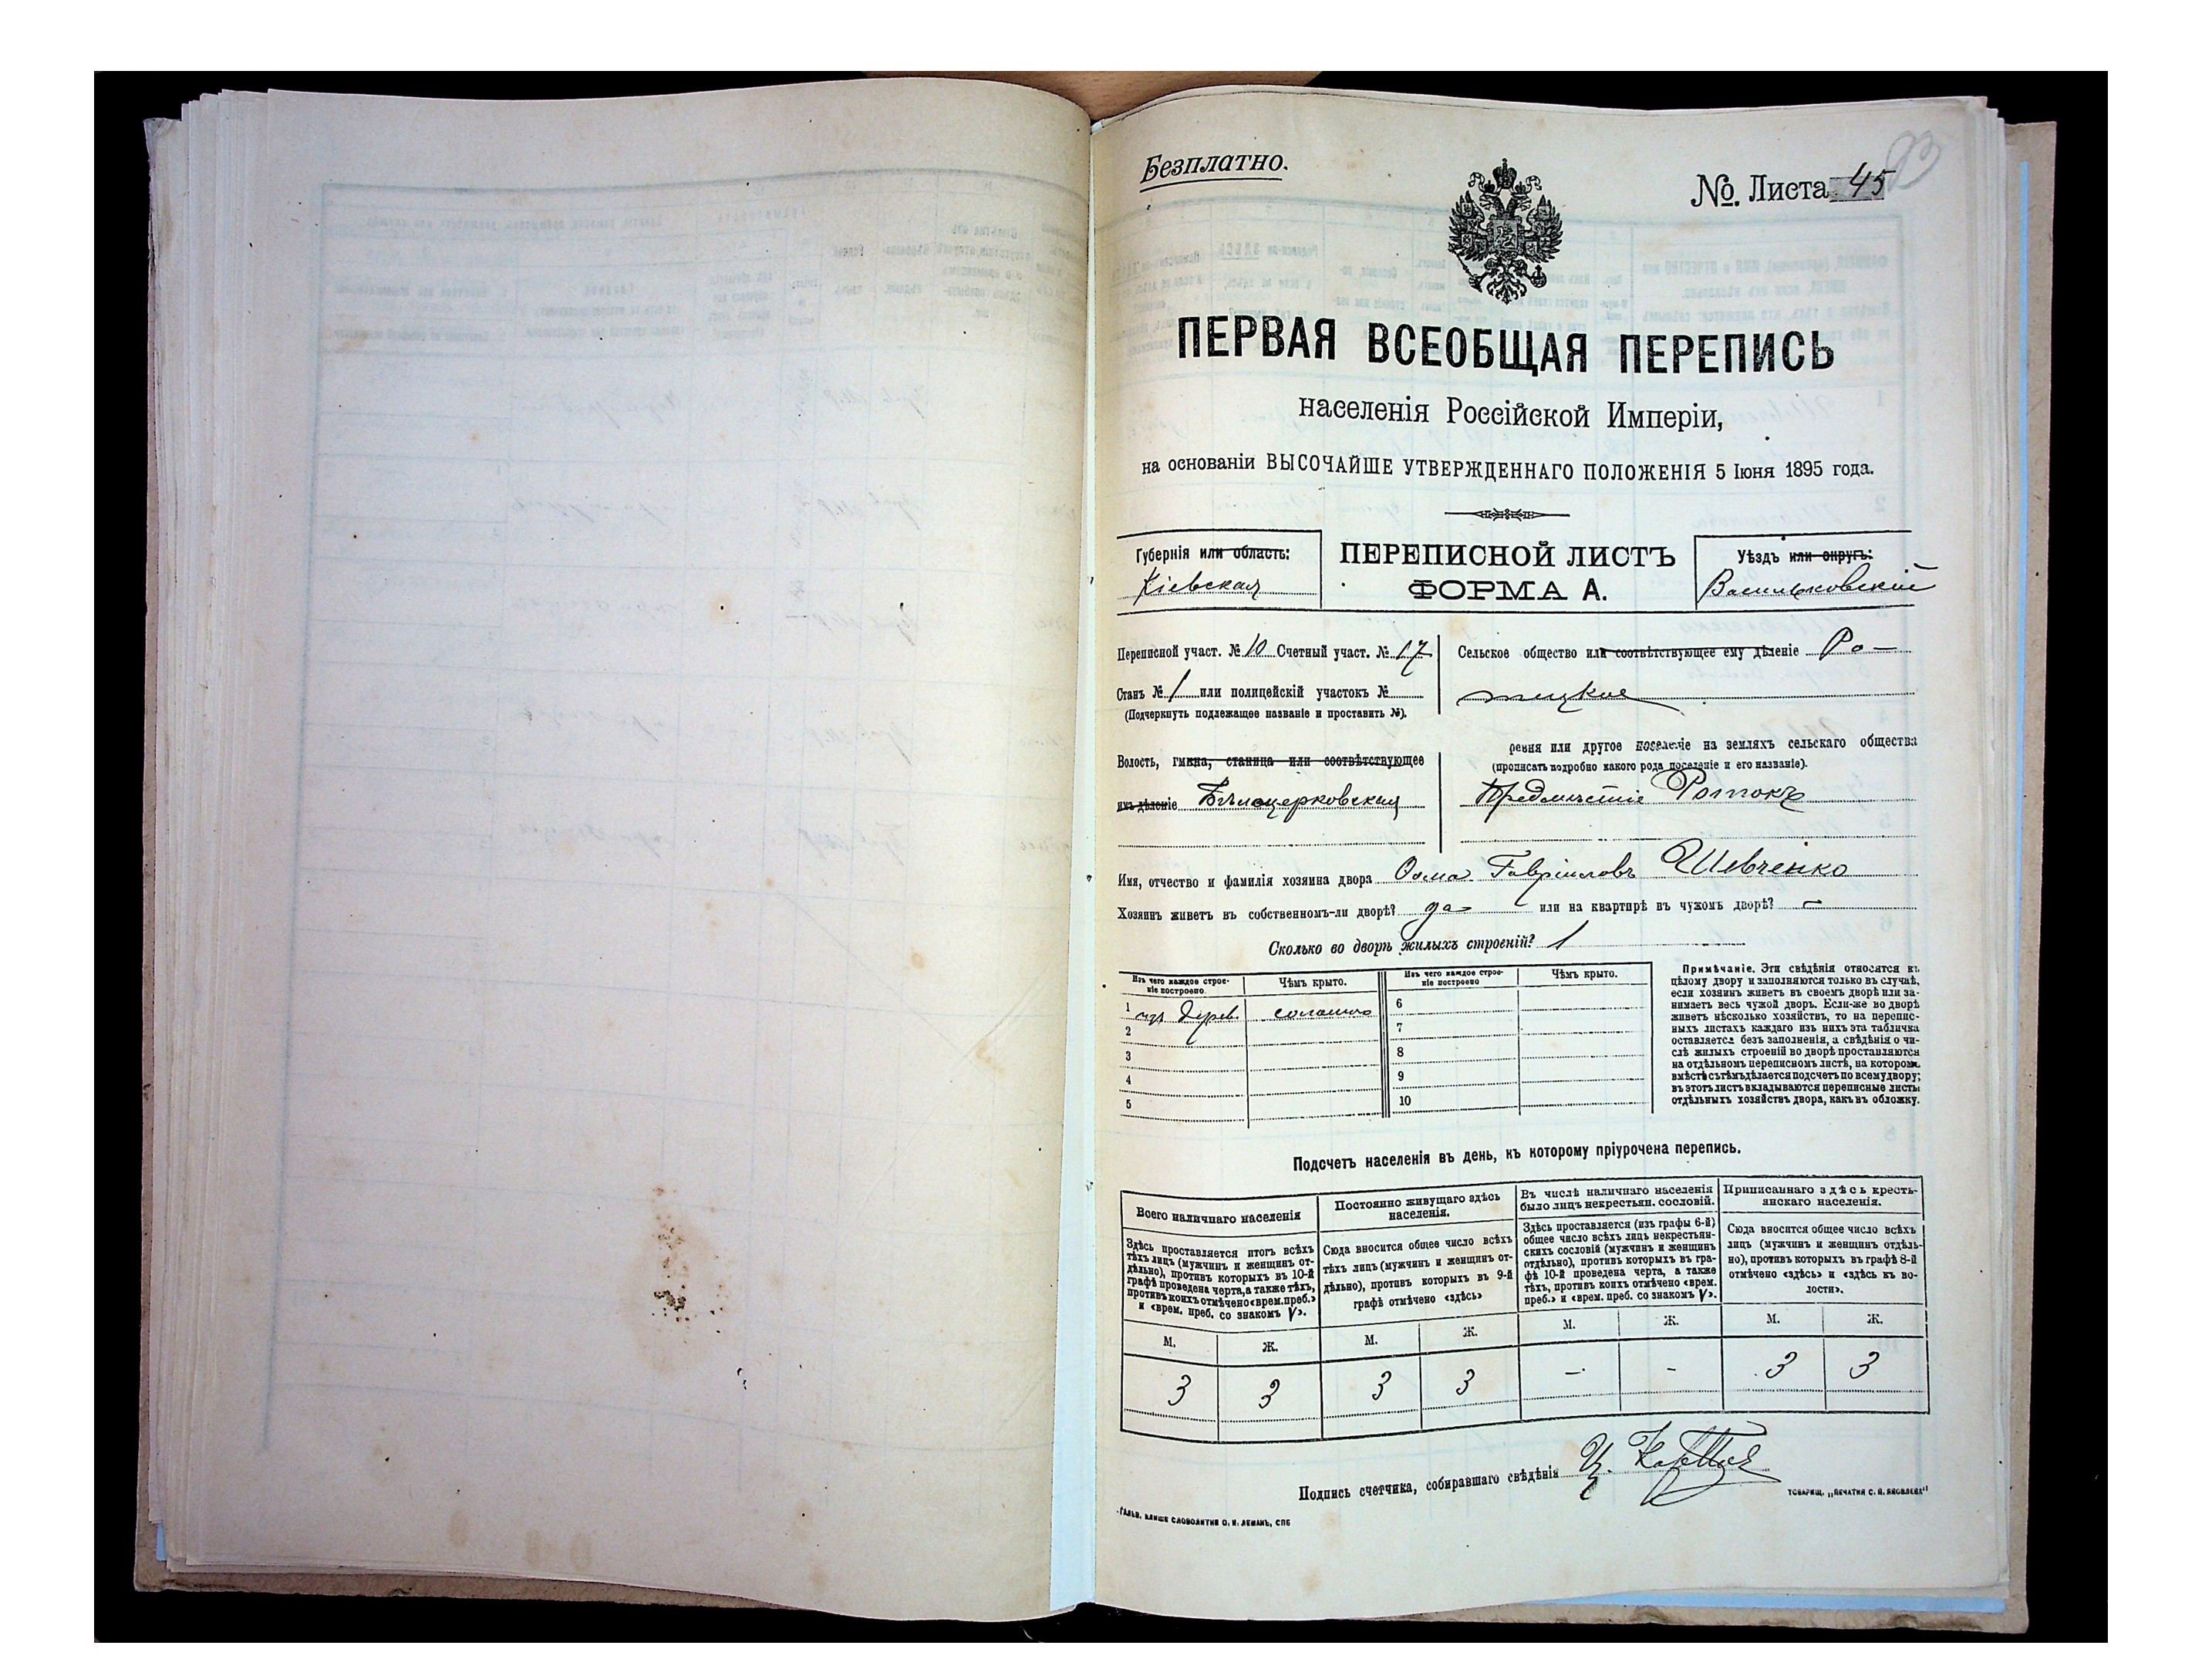 Безплатно.
№. Листа 45
93
ПЕРВАЯ ВСЕОБЩАЯ ПЕРЕПИСЬ
населенія Россійской Имперіи,
на основаніи ВЫСОЧАЙШЕ УТВЕРЖДЕННАГО ПОЛОЖЕНІЯ 5 Іюня 1895 года.
Губернія или область:
Кіевская
ПЕРЕПИСНОЙ ЛИСТЪ
ФОРМА А.
Уѣздъ или округъ:
Васильковскій
Переписной участ. № 10 Счетный участ. № 17
Станъ № 1 или полицейскій участокъ №
(Подчеркнуть подлежащее названіе и проставить №).
Сельское общество или соотвѣтствующее ему дѣленіе Ро-
тицкие
Волость, гмина, станица или соотвѣтствующее
имъ дѣленіе Бѣлоцерковская
ревня или другое поселеніе на земляхъ сельскаго общества
(прописать подробно какого рода поселеніе и его названіе).
Предмѣстіе Ротокъ
Имя, отчество и фамилія хозяина двора Ѳома Гавріиловъ Шевченко
Хозяинъ живетъ въ собственномъ-ли дворѣ? да или на квартирѣ въ чужомъ дворѣ? —
Сколько во дворѣ жилыхъ строеній? 1
Изъ чего каждое строе-
ніе построено.
Чѣмъ крыто.
Изъ чего каждое строе-
ніе построено
Чѣмъ крыто.
1 изъ дерев. соломою 6
2 7
3 8
4 9
5 10
Примѣчаніе. Эти свѣдѣнія относятся къ
цѣлому двору и заполняются только въ случаѣ,
если хозяинъ живетъ въ своемъ дворѣ или за-
нимаетъ весь чужой дворъ. Если-же во дворѣ
живетъ нѣсколько хозяйствъ, то на перепис-
ныхъ листахъ каждаго изъ нихъ эта табличка
оставляется безъ заполненія, а свѣдѣнія о чи-
слѣ жилыхъ строеній во дворѣ проставляются
на отдѣльномъ переписномъ листѣ, на которомъ
вмѣстѣ съ тѣмъ дѣлается подсчетъ по всему двору;
въ этотъ листъ вкладываются переписные листы
отдѣльныхъ хозяйствъ двора, какъ въ обложку.
Подсчетъ населенія въ день, къ которому пріурочена перепись.
Всего наличнаго населенія
Здѣсь проставляется итогъ всѣхъ
тѣхъ лицъ (мужчинъ и женщинъ от-
дѣльно), противъ которыхъ въ 10-й
графѣ проведена черта, а также тѣхъ,
противъ коихъ отмѣчено «врем. преб.»
и «врем. преб. со знакомъ V».
Постоянно живущаго здѣсь
населенія.
Сюда вносится общее число всѣхъ
тѣхъ лицъ (мужчинъ и женщинъ от-
дѣльно), противъ которыхъ въ 9-й
графѣ отмѣчено «здѣсь»
Въ числѣ наличнаго населенія
было лицъ некрестьян. сословій.
Здѣсь проставляется (изъ графы 6-й)
общее число всѣхъ лицъ некрестьян-
скихъ сословій (мужчинъ и женщинъ
отдѣльно), противъ которыхъ въ гра-
фѣ 10-й проведена черта, а также
тѣхъ, противъ коихъ отмѣчено «врем.
преб.» и «врем. преб. со знакомъ V».
Приписаннаго здѣсь кресть-
янскаго населенія.
Сюда вносится общее число всѣхъ
лицъ (мужчинъ и женщинъ отдѣль-
но), противъ которыхъ въ графѣ 8-й
отмѣчено «здѣсь» и «здѣсь къ во-
лости».
М. Ж. М. Ж. М. Ж. М. Ж.
3 3 3 3 - - 3 3
Подпись счетчика, собиравшаго свѣдѣнія
ГАЛЬВ. КЛИШЕ СЛОВОЛИТНИ О. И. ЛЕМАНЪ, СПБ
ТОВАРИЩ. „ПЕЧАТНЯ С. П. ЯКОВЛЕВА"